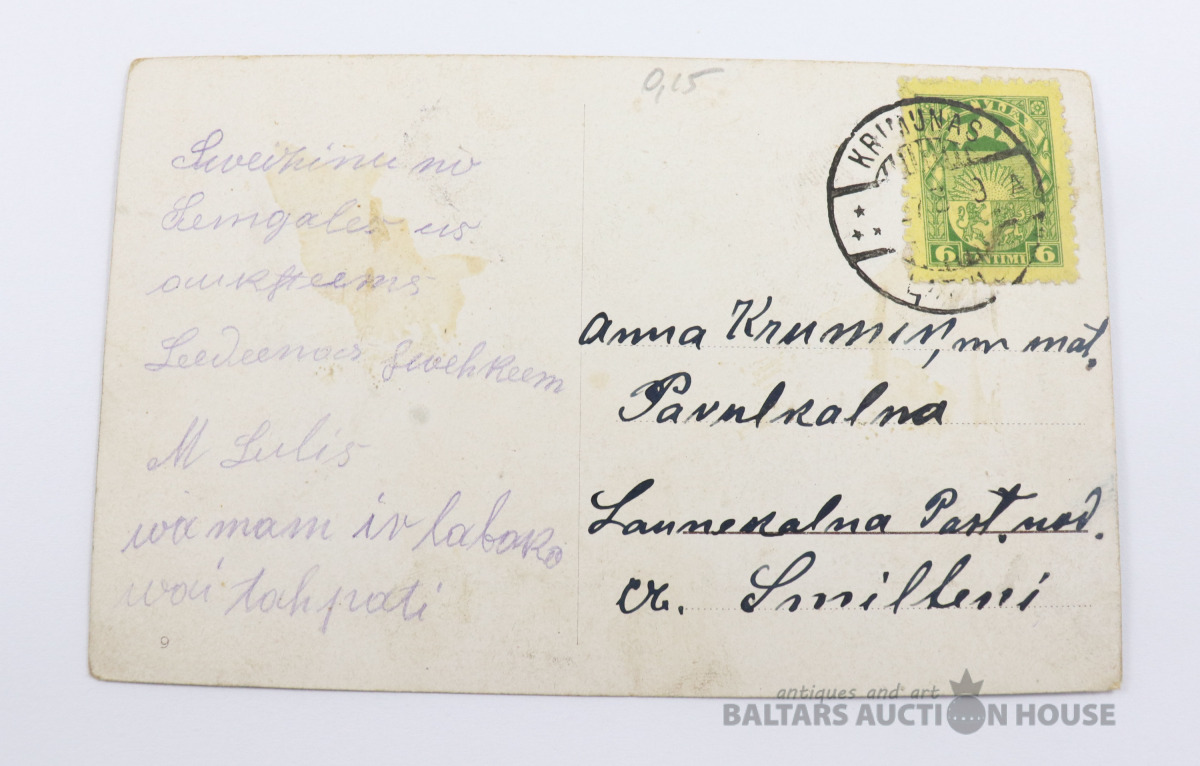 0,15
KRIMUNAS
LATVIJA
6 SANTIMI 6
Sweizinu no
Semgales us
aukſteems
Leedeenas ſwehkeem
M Lulis
wa mam ir labaka
wai tahpati
Anna Krumin, un mat.
Pavulkalna
Launekalna Past. nod.
cr. Smilteni
9
antiques and art
BALTARS AUCTION HOUSE